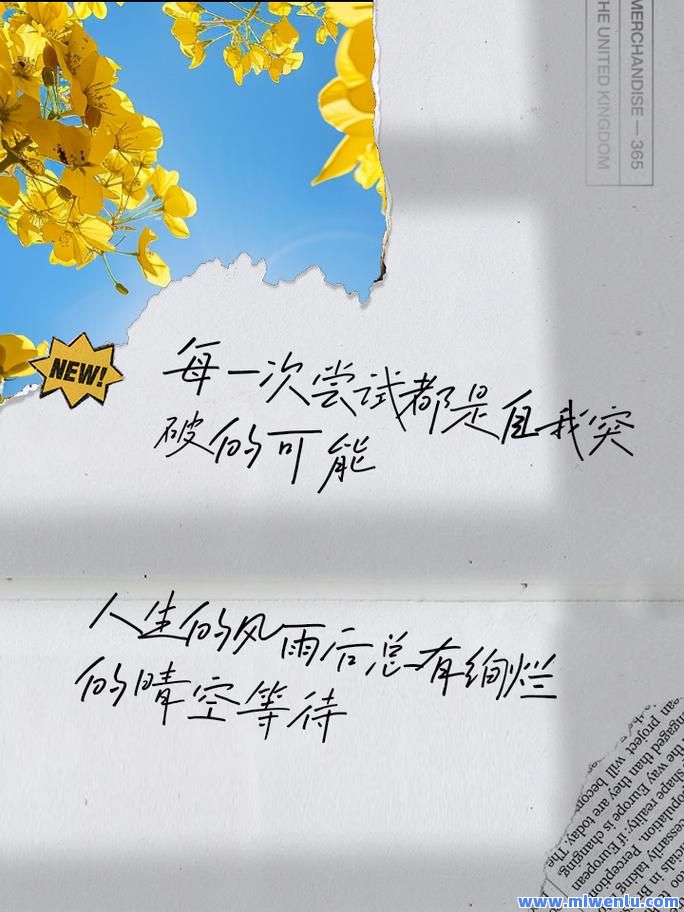 MERCHANDISE — 365
THE UNITED KINGDOM
NEW!
每一次尝试都是自我突
破的可能
人生的风雨后总有绚烂
的晴空等待
too
cials in B
Perception
essarily taking
opulation.
shape reality: if European
the way Europe is changing
ngaged than they are today. The
an project will becom
www.miwenlu.com